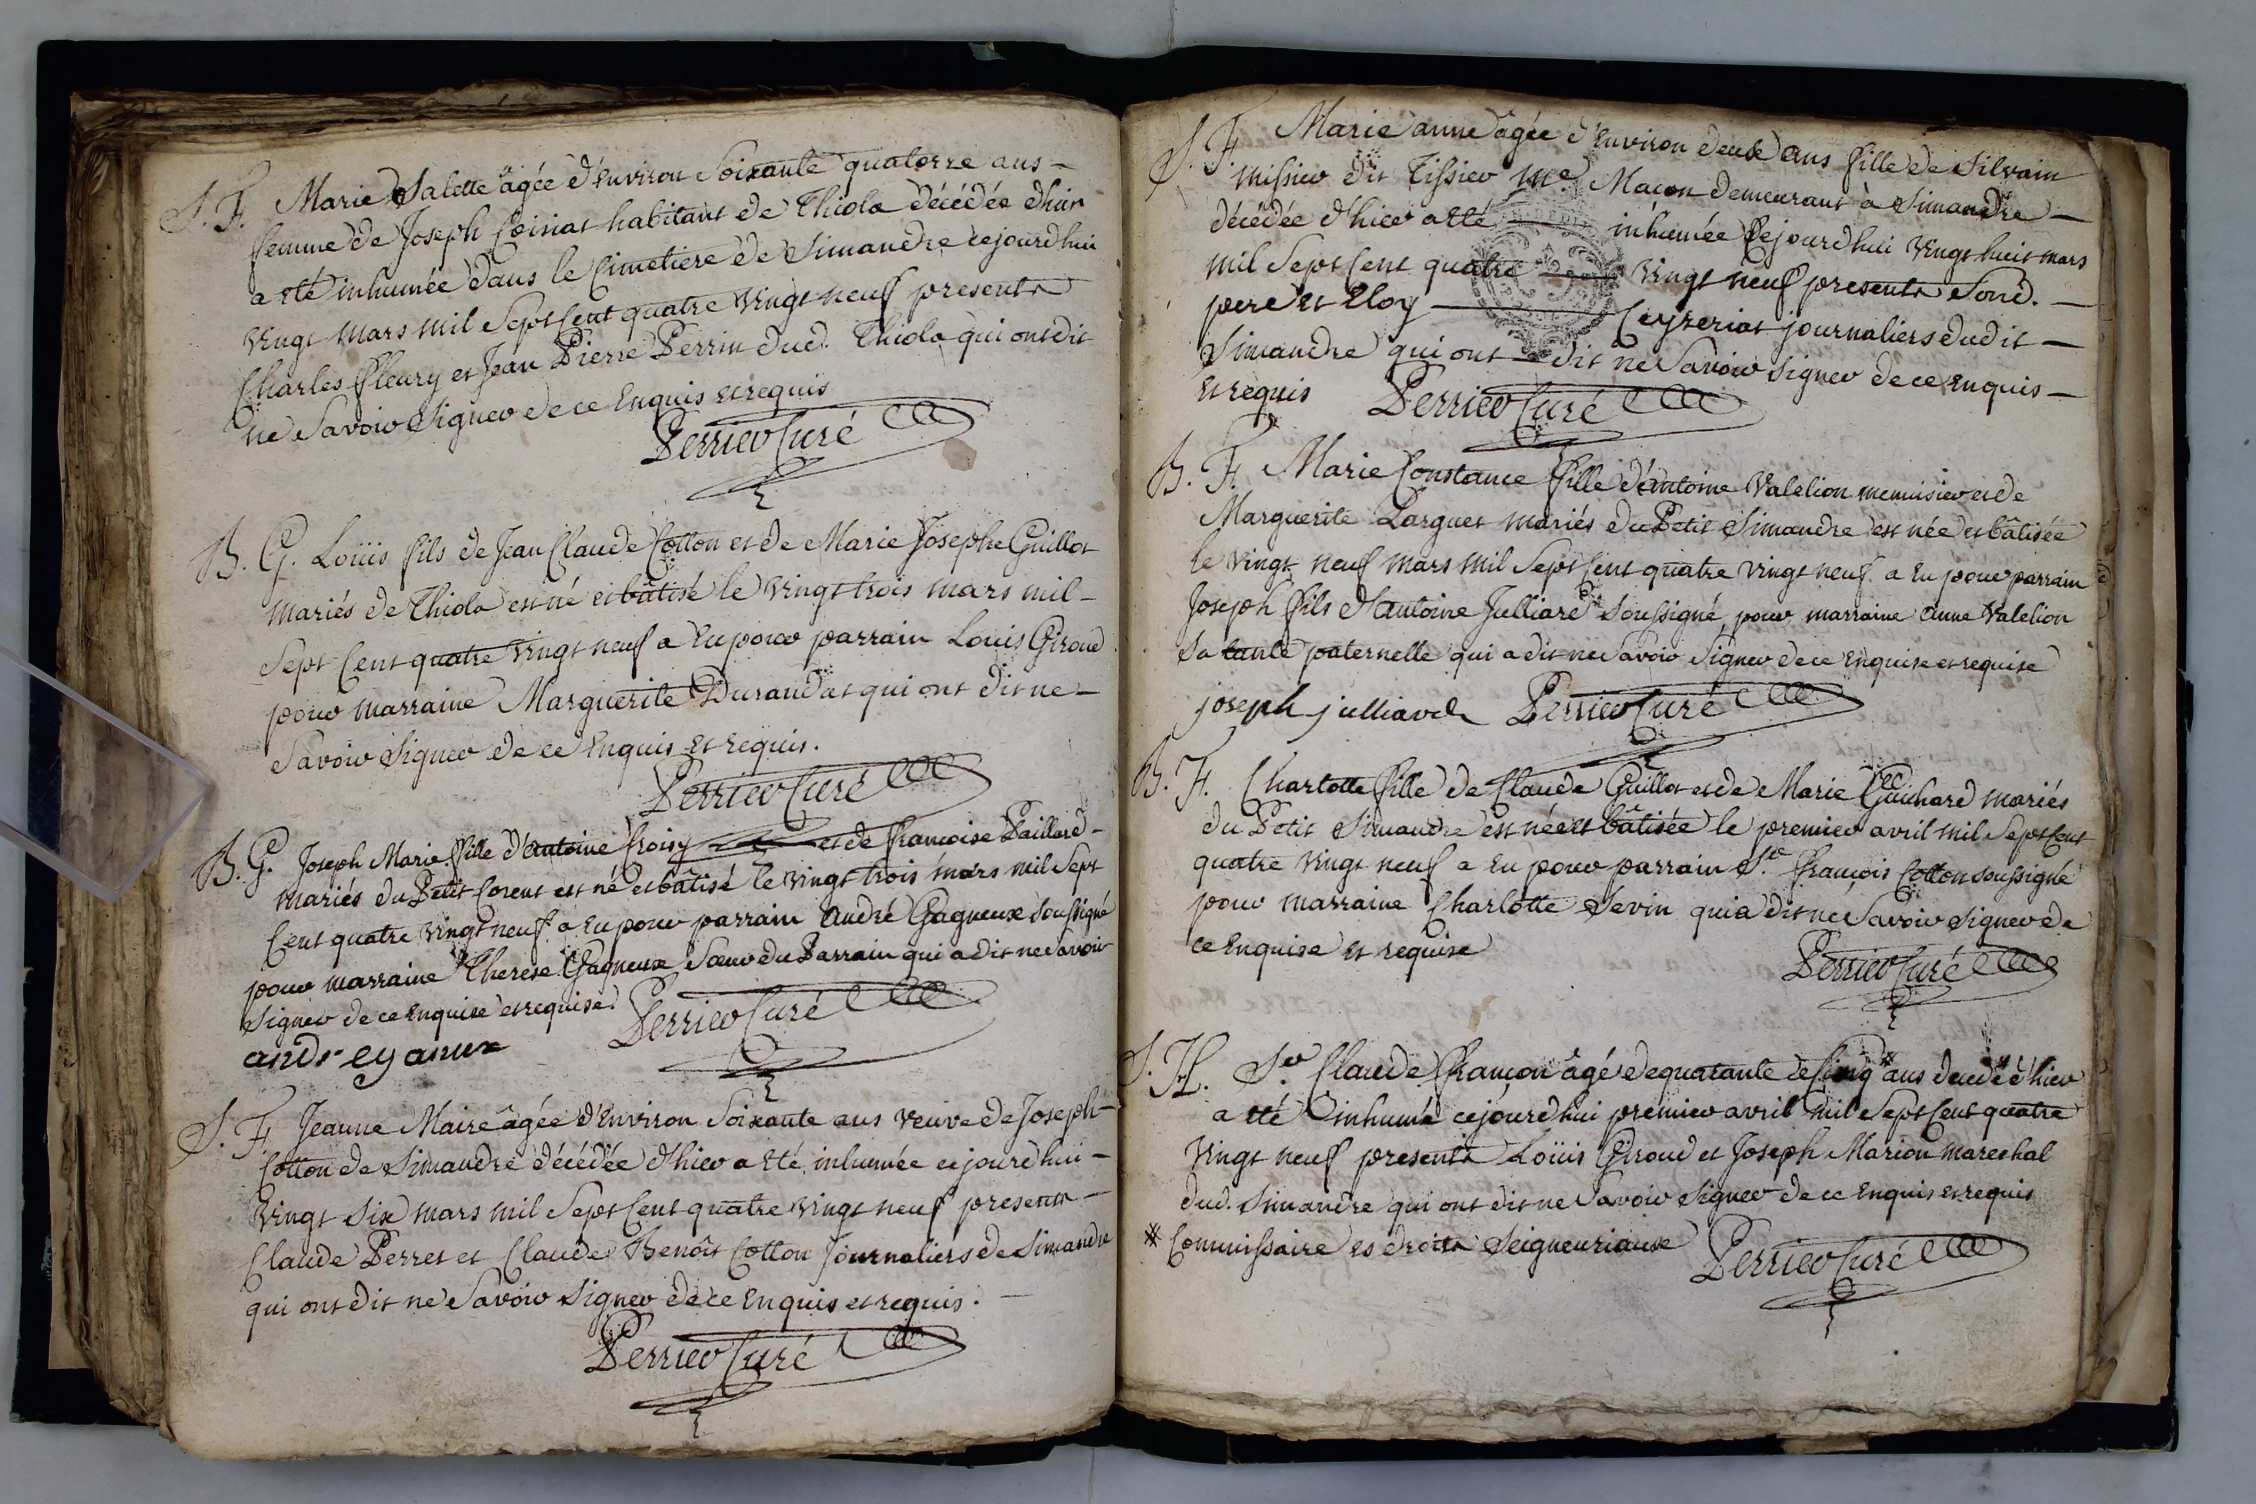 S. F. Marie Salette âgée d'Environ Soixante quatorze ans -
femme de Joseph Coiriat habitant de Thiola décédée d'hier
a eté inhumée dans le Cimetiere de Simandre cejourdhui
vingt mars mil Sept Cent quatre vingt neuf presents
Charles fleury et Jean Pierre Perrin dud. Thiola qui ont dit
ne Savoir Signer de ce Enquis et requis
Perrier Curé
B. G. Loüis fils de Jean Claude Cotton et de Marie Josephe Guillot
mariés de Thiola est né et bâtisé le vingt trois mars mil -
Sept Cent quatre vingt neuf a Eu pour parrain Louis Giroud
pour marraine Marguerite Durandat qui ont dit ne -
Savoir Signer de ce Enquis et requis.
Perrier Curé
B. G. Joseph Marie fille d'antoine froisy et de françoise Paillard -
mariés du Petit Corent est né et bâtisé le vingt trois mars mil Sept
Cent quatre vingt neuf a Eu pour parrain andré Gagneux Soussigné
pour marraine Therese Gagneux Sœur du Parrain qui a dit ne Savoir
Signer de ce Enquise et requise.
Perrier Curé
S. F. Jeanne Maire âgée d'Environ Soixante ans veuve de Joseph -
Cotton de Simandre décédée d'hier a eté inhumée ce jourd'hui -
vingt Six mars mil Sept Cent quatre vingt neuf presents -
Claude Perret et Claude Benoît Cotton Journaliers de Simandre
qui ont dit ne Savoir Signer de ce Enquis et requis. -
Perrier Curé
S. F. Marie anne âgée d'Environ deux ans fille de Silvain
Missier dit Tissier Me. Maçon demeurant à Simandre -
décédée d'hier a eté inhumée Cejourdhui vingt huit mars
mil Sept Cent quatre vingt neuf presents Sond. -
pere et Eloy Ceyzeriat journaliers dudit -
Simandre qui ont dit ne Savoir Signer de ce Enquis -
et requis Perrier Curé
B. F. Marie Constance fille d'antoine Valelion menuisier et de
Marguerite Parguet mariés du Petit Simandre est née et bâtisée
le vingt neuf mars mil Sept Cent quatre vingt neuf a Eu pour parrain
Joseph fils d'antoine Julliard Soussigné, pour marraine anne Valelion
Sa tante paternelle qui a dit ne Savoir Signer de ce Enquise et requise
joseph julliard Perrier Curé
B. F. Charlotte fille de Claude Guillot et de Marie Guichard mariés
du Petit Simandre est née et bâtisée le premier avril mil Sept Cent
quatre vingt neuf a Eu pour parrain Sr. françois Cotton soussigné
pour marraine Charlotte Sevin qui a dit ne Savoir Signer de
ce Enquise et requise
Perrier Curé
S. H. Sr Claude françon âgé de quarante Cinq* ans decedé d'hier
a eté inhumé cejourdhui premier avril mil Sept Cent quatre
vingt neuf presents Loüis Giroud et Joseph Marion marechal
dud. Simandre qui ont dit ne Savoir Signer de ce Enquis et requis
* Commissaire es droits Seigneuriaux Perrier Curé